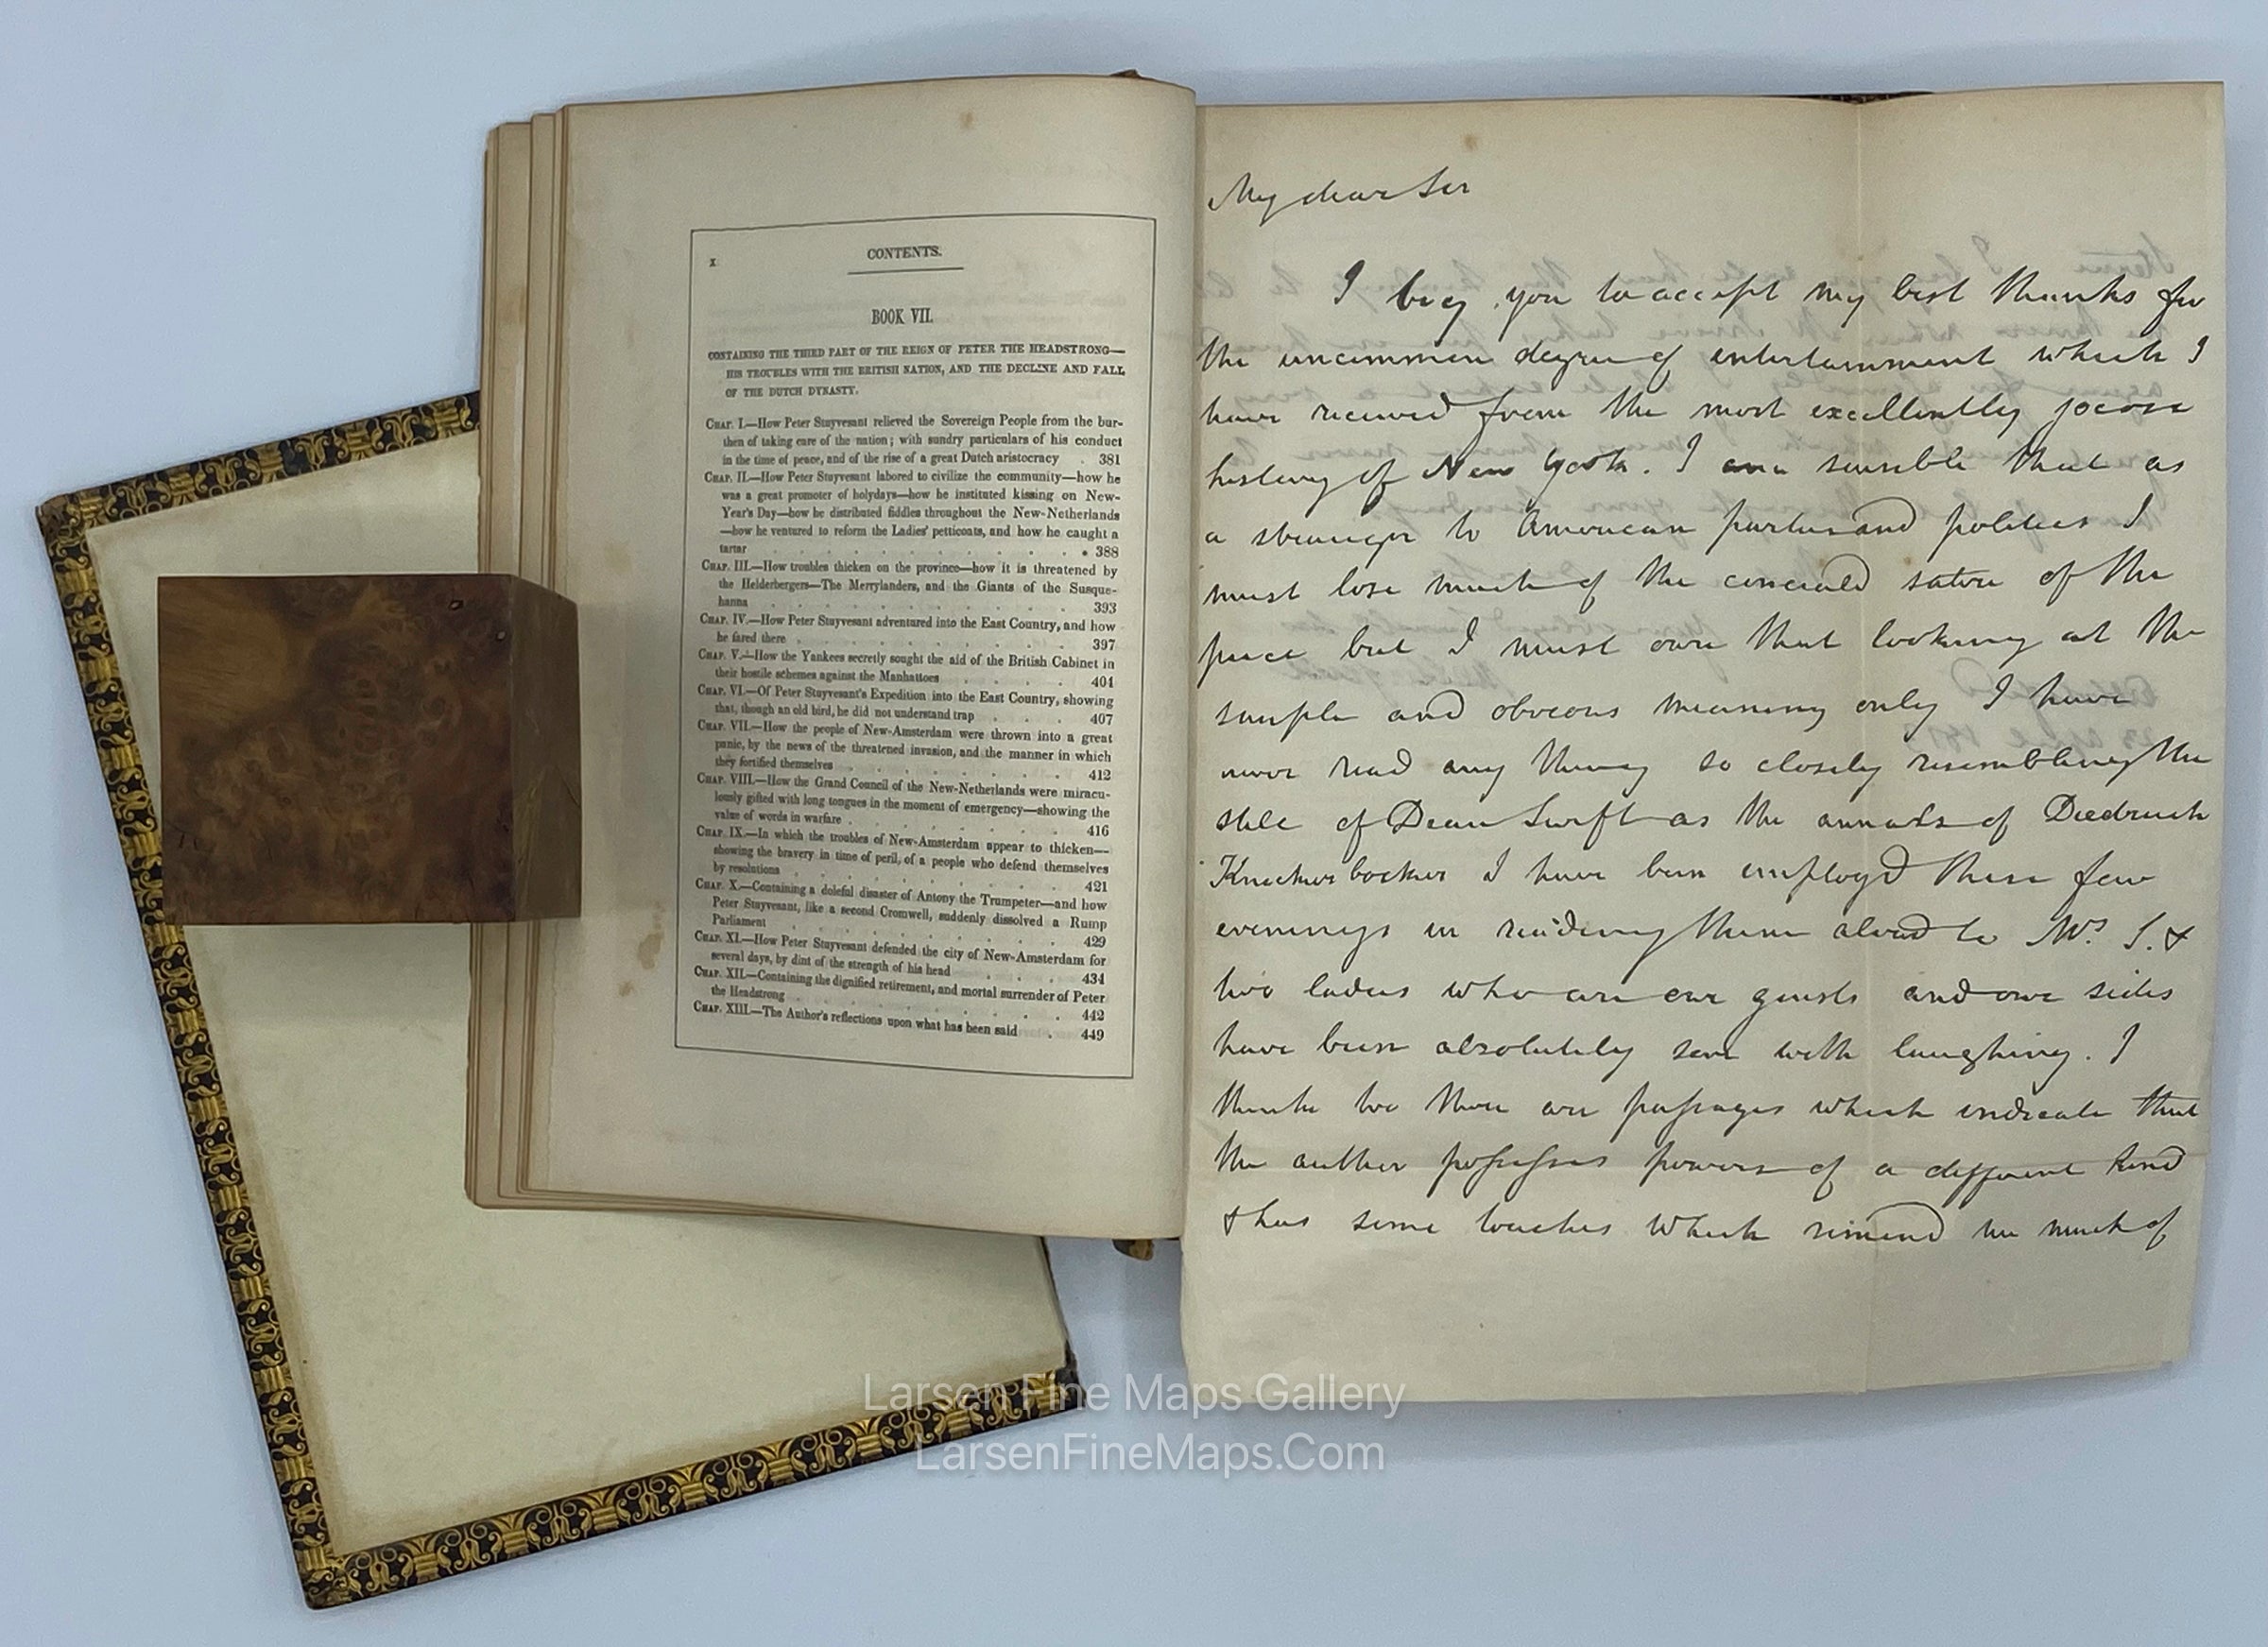 x
CONTENTS.
BOOK VII.
CONTAINING THE THIRD PART OF THE REIGN OF PETER THE HEADSTRONG—
HIS TROUBLES WITH THE BRITISH NATION, AND THE DECLINE AND FALL
OF THE DUTCH DYNASTY.
CHAP. I.—How Peter Stuyvesant relieved the Sovereign People from the bur-
then of taking care of the nation; with sundry particulars of his conduct
in the time of peace, and of the rise of a great Dutch aristocracy . 381
CHAP. II.—How Peter Stuyvesant labored to civilize the community—how he
was a great promoter of holydays—how he instituted kissing on New-
Year's Day—how he distributed fiddles throughout the New-Netherlands
—how he ventured to reform the Ladies' petticoats, and how he caught a
tartar . . . . . . . . . . 388
CHAP. III.—How troubles thicken on the province—how it is threatened by
the Helderbergers—The Merrylanders, and the Giants of the Susque-
hanna . . . . . . . . . . 393
CHAP. IV.—How Peter Stuyvesant adventured into the East Country, and how
he fared there . . . . . . . . 397
CHAP. V.—How the Yankees secretly sought the aid of the British Cabinet in
their hostile schemes against the Manhattoes . . . . 401
CHAP. VI.—Of Peter Stuyvesant's Expedition into the East Country, showing
that, though an old bird, he did not understand trap . . . 407
CHAP. VII.—How the people of New-Amsterdam were thrown into a great
panic, by the news of the threatened invasion, and the manner in which
they fortified themselves . . . . . . . 412
CHAP. VIII.—How the Grand Council of the New-Netherlands were miracu-
lously gifted with long tongues in the moment of emergency—showing the
value of words in warfare . . . . . . . 416
CHAP. IX.—In which the troubles of New-Amsterdam appear to thicken—
showing the bravery in time of peril, of a people who defend themselves
by resolutions . . . . . . . . 421
CHAP. X.—Containing a doleful disaster of Antony the Trumpeter—and how
Peter Stuyvesant, like a second Cromwell, suddenly dissolved a Rump
Parliament . . . . . . . . 429
CHAP. XI.—How Peter Stuyvesant defended the city of New-Amsterdam for
several days, by dint of the strength of his head . . . . 434
CHAP. XII.—Containing the dignified retirement, and mortal surrender of Peter
the Headstrong . . . . . . . . 442
CHAP. XIII.—The Author's reflections upon what has been said . 449
My dear Sir
I beg you to accept my best thanks for
the uncommon degree of entertainment which I
have received from the most excellently jocose
history of New York. I am sensible that as
a stranger to American parties and politics I
must lose much of the conceald satire of the
piece but I must own that looking at the
simple and obvious meaning only I have
never read any thing so closely resembling the
stile of Dean Swift as the annals of Diedrich
Knickerbocker I have been employd these few
evenings in reading them aloud to Mrs. S. &
two ladies who are our guests and our sides
have been absolutely sore with laughing. I
think too there are passages which indicate that
the author possesses powers of a different kind
& has some touches which remind me much of
Larsen Fine Maps Gallery
LarsenFineMaps.Com